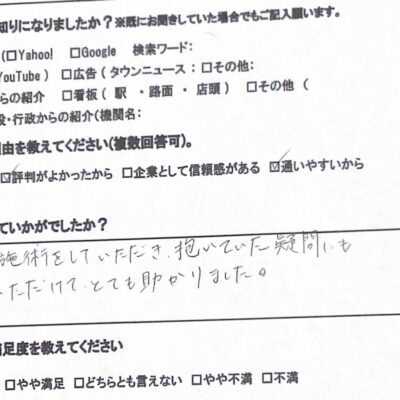 知りになりましたか？※既にお聞きしていた場合でもご記入願います。
(□Yahoo! □Google 検索ワード:
YouTube ) □広告 ( タウンニュース : □その他:
らの紹介 □看板 ( 駅 ・路面 ・ 店頭 ) □その他 (
・行政からの紹介(機関名:
由を教えてください(複数回答可)。
☑評判がよかったから □企業として信頼感がある ☑通いやすいから
ていかがでしたか？
施術をしていただき、抱いていた疑問にも
いただけて、とても助かりました。
足度を教えてください
□やや満足 □どちらとも言えない □やや不満 □不満